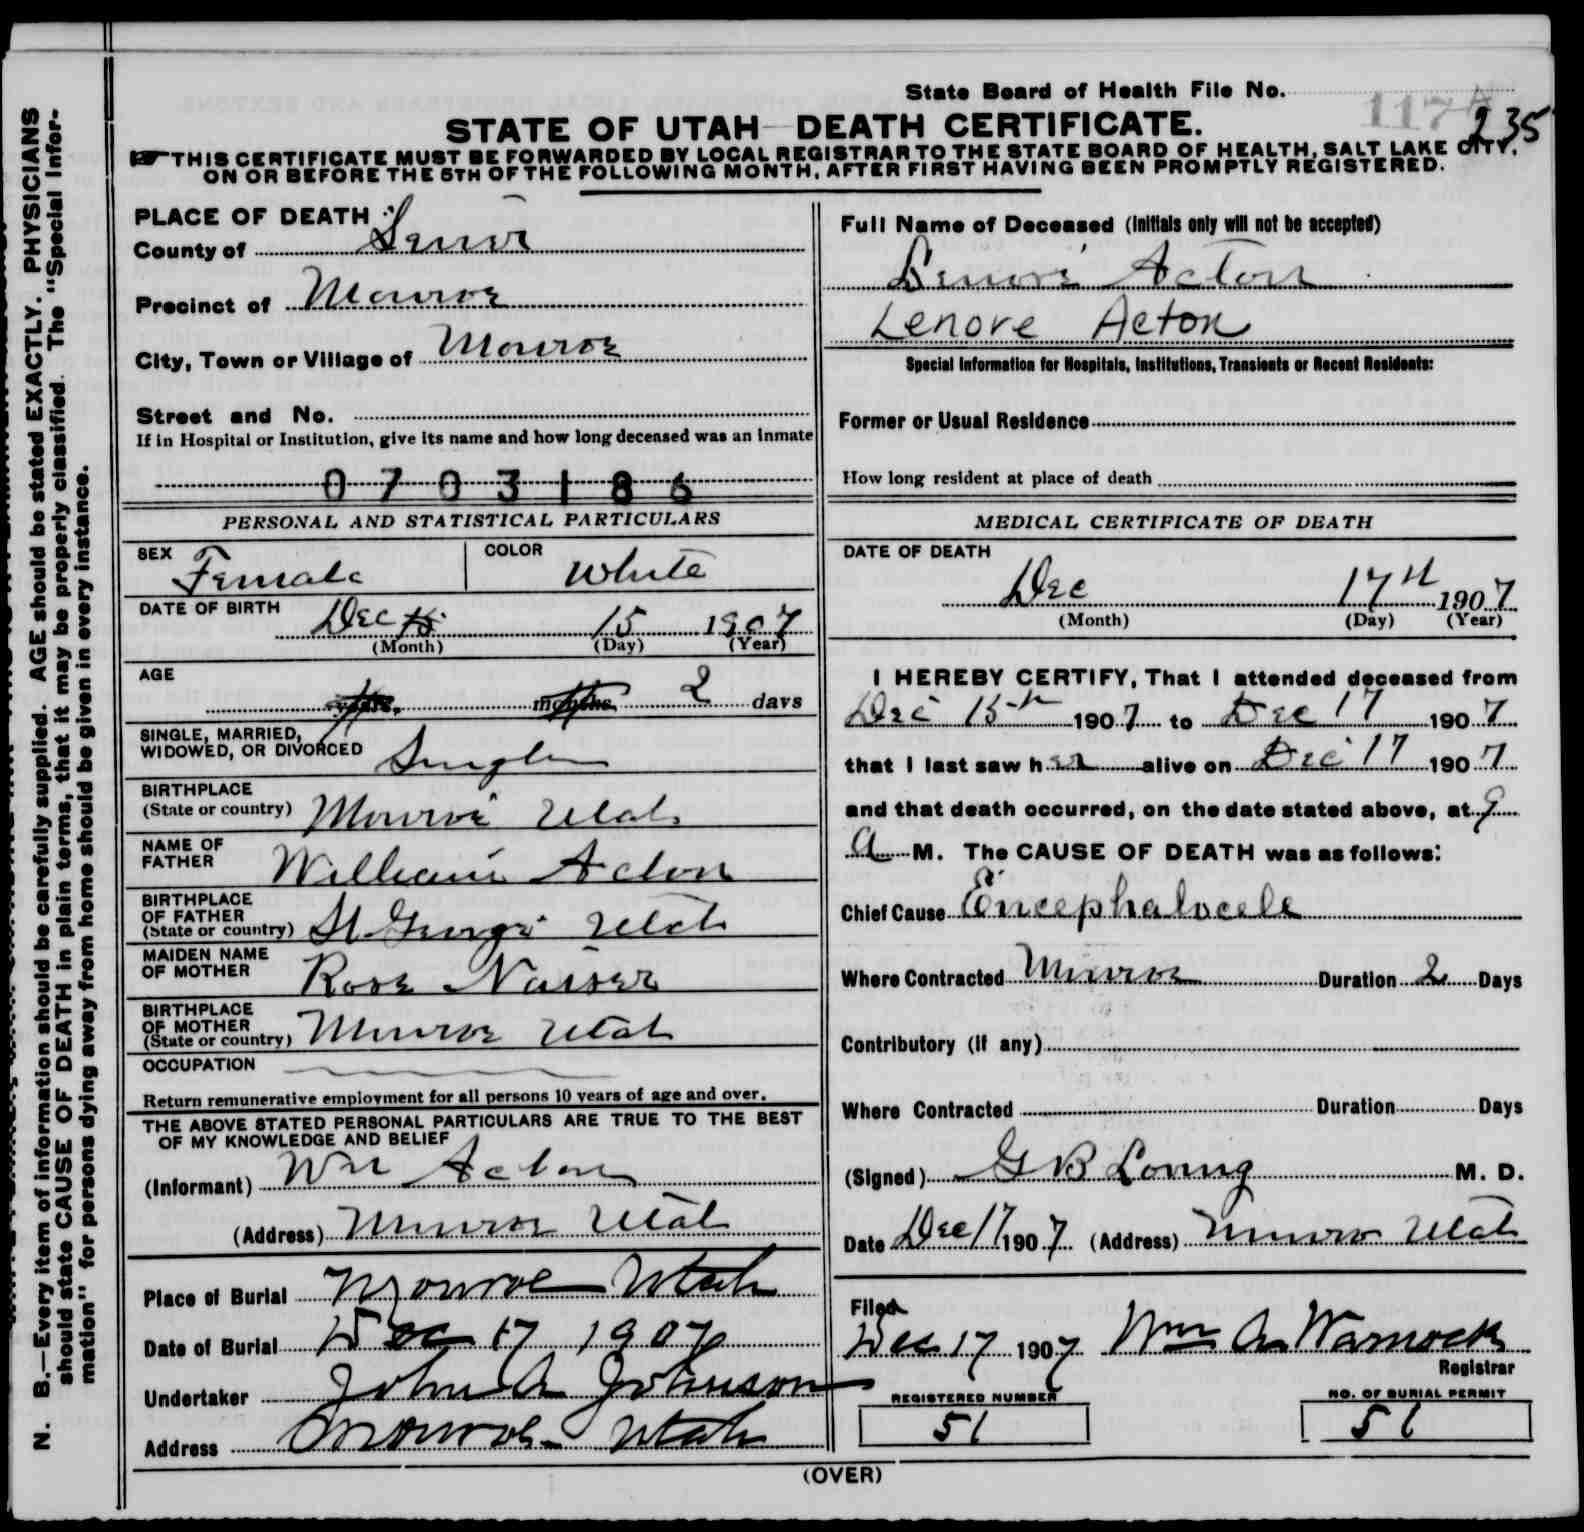 State Board of Health File No. 117 235
STATE OF UTAH—DEATH CERTIFICATE.
THIS CERTIFICATE MUST BE FORWARDED BY LOCAL REGISTRAR TO THE STATE BOARD OF HEALTH, SALT LAKE CITY,
ON OR BEFORE THE 5TH OF THE FOLLOWING MONTH, AFTER FIRST HAVING BEEN PROMPTLY REGISTERED.
PLACE OF DEATH
County of Sevier
Precinct of Monroe
City, Town or Village of Monroe
Street and No.
If in Hospital or Institution, give its name and how long deceased was an inmate
0703186
PERSONAL AND STATISTICAL PARTICULARS
SEX Female COLOR White
DATE OF BIRTH Dec 15 15 1907
(Month) (Day) (Year)
AGE years, months 2 days
SINGLE, MARRIED,
WIDOWED, OR DIVORCED Single
BIRTHPLACE
(State or country) Monroe Utah
NAME OF
FATHER William Acton
BIRTHPLACE
OF FATHER
(State or country) St George Utah
MAIDEN NAME
OF MOTHER Rose
BIRTHPLACE
OF MOTHER
(State or country) Monroe Utah
OCCUPATION
Return remunerative employment for all persons 10 years of age and over.
THE ABOVE STATED PERSONAL PARTICULARS ARE TRUE TO THE BEST
OF MY KNOWLEDGE AND BELIEF
(Informant) Wm Acton
(Address) Monroe Utah
Place of Burial Monroe Utah
Date of Burial Dec 17 1907
Undertaker John A Johnson
Address Monroe Utah
Full Name of Deceased (Initials only will not be accepted)
Lenore Acton
Lenore Acton
Special Information for Hospitals, Institutions, Transients or Recent Residents:
Former or Usual Residence
How long resident at place of death
MEDICAL CERTIFICATE OF DEATH
DATE OF DEATH
Dec 17th 1907
(Month) (Day) (Year)
I HEREBY CERTIFY, That I attended deceased from
Dec 15th 1907 to Dec 17 1907
that I last saw her alive on Dec 17 1907
and that death occurred, on the date stated above, at 9
a M. The CAUSE OF DEATH was as follows:
Chief Cause Encephalocele
Where Contracted Monroe Duration 2 Days
Contributory (if any)
Where Contracted Duration Days
(Signed) G B Loring M. D.
Date Dec 17 1907 (Address) Monroe Utah
Filed
Dec 17 1907 Wm A Warnock
Registrar
REGISTERED NUMBER
51
NO. OF BURIAL PERMIT
51
(OVER)
N. B.—Every item of information should be carefully supplied. AGE should be stated EXACTLY. PHYSICIANS
should state CAUSE OF DEATH in plain terms, that it may be properly classified. The "Special Infor-
mation" for persons dying away from home should be given in every instance.